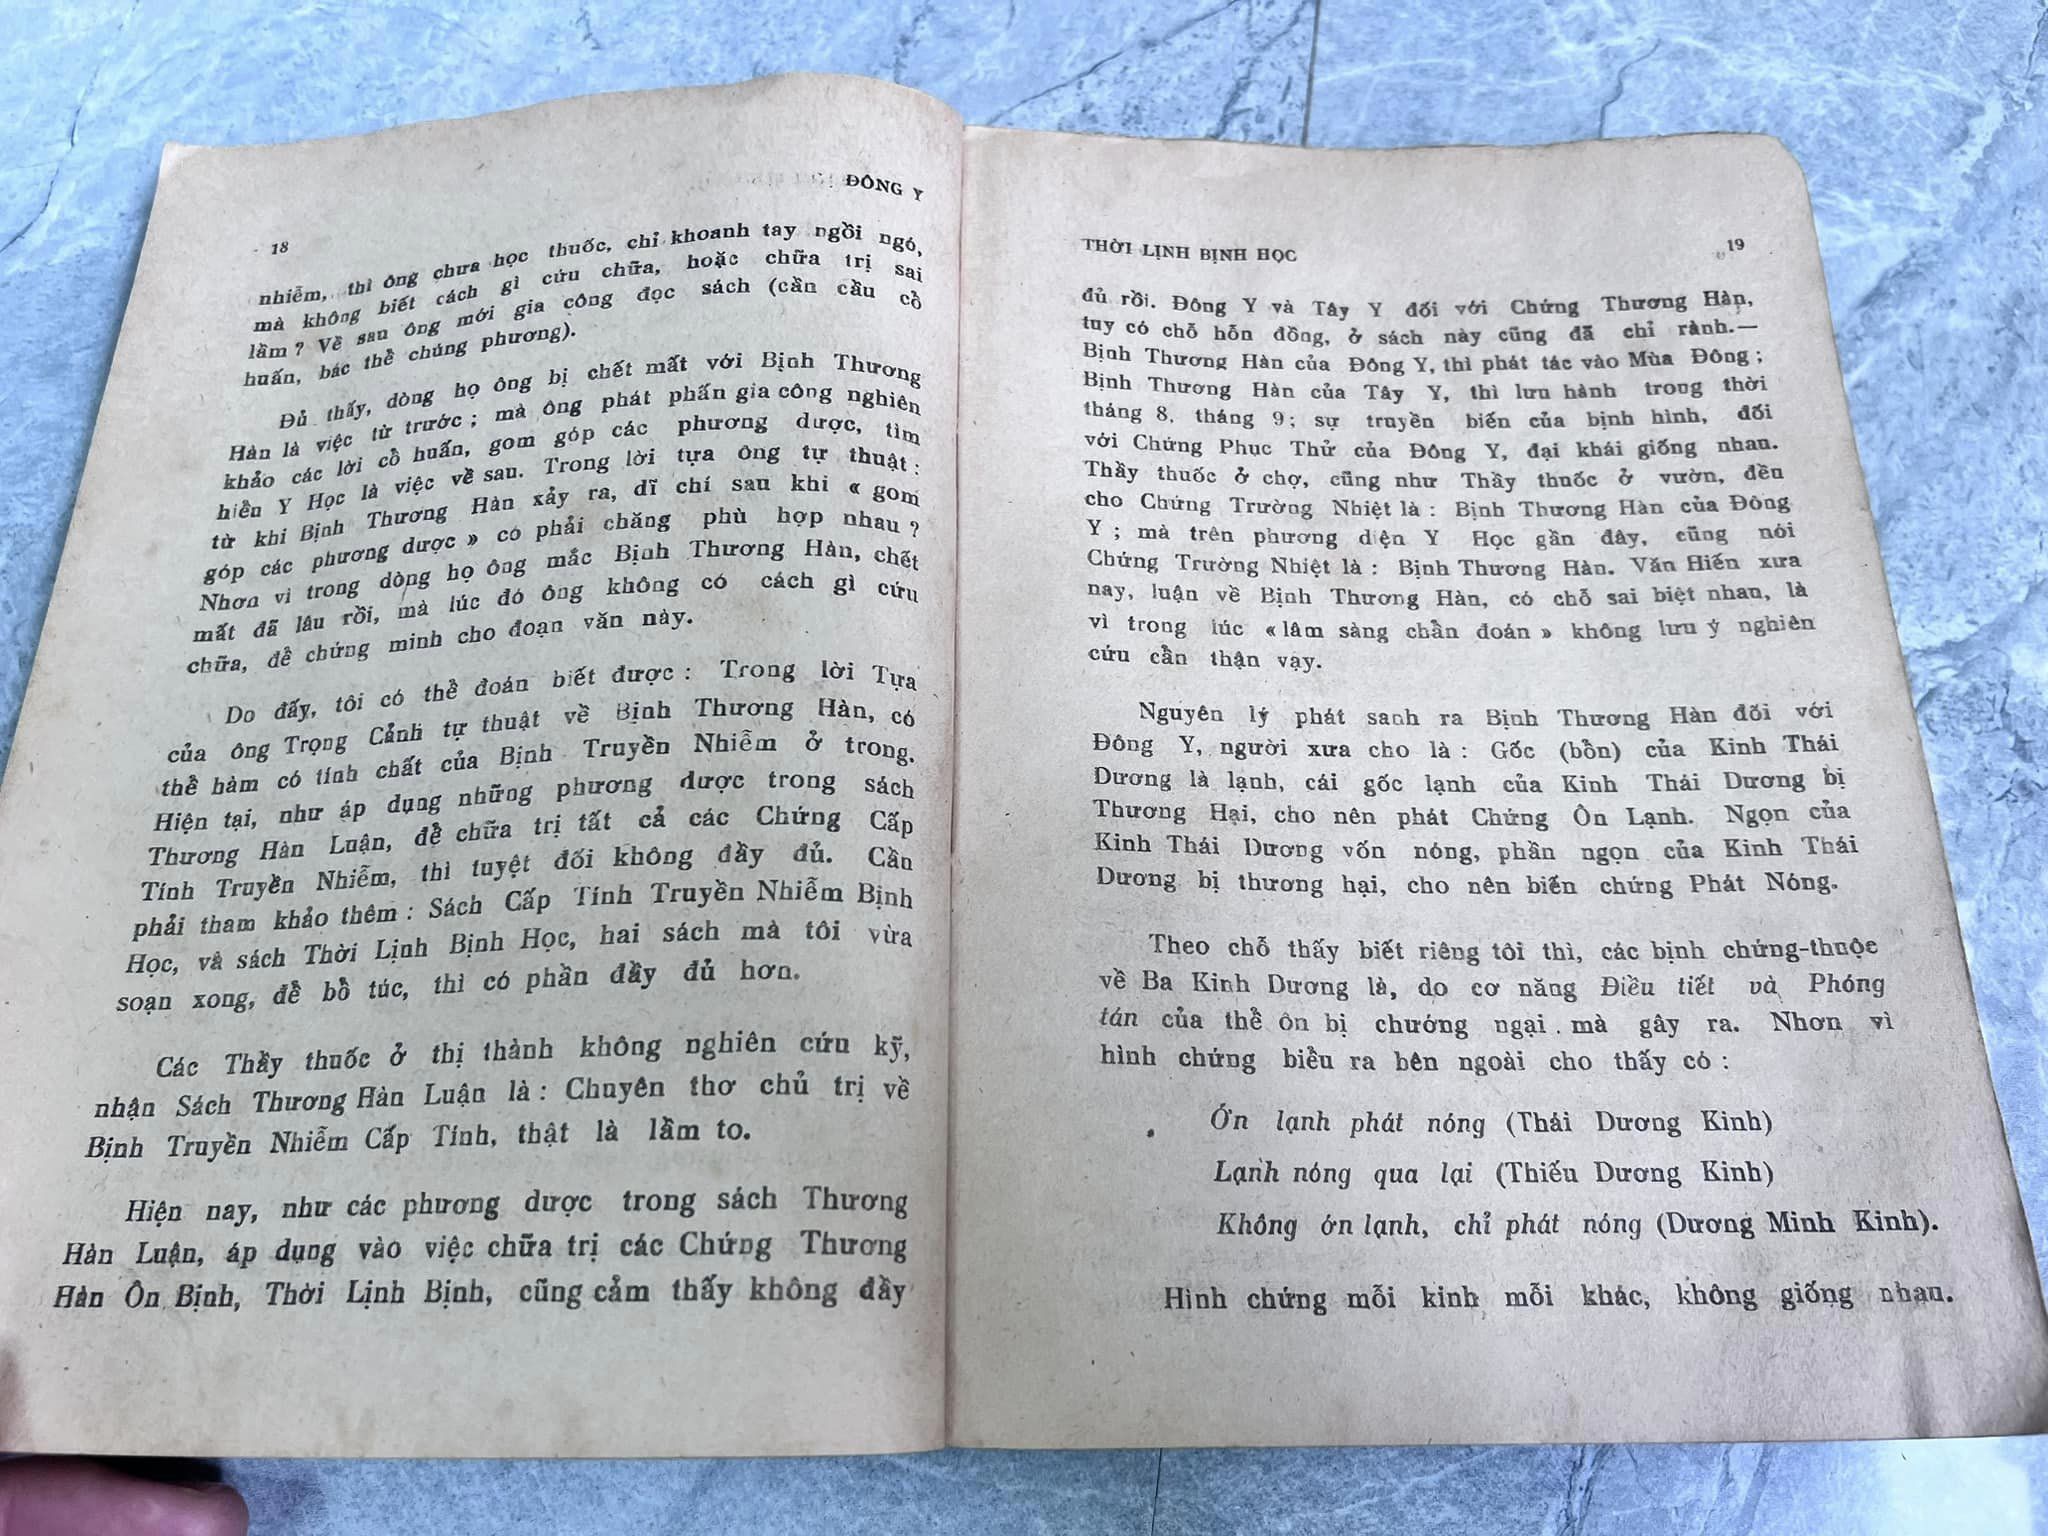 18
ĐÔNG Y
nhiễm, thì ông chưa học thuốc, chỉ khoanh tay ngồi ngó,
mà không biết cách gì cứu chữa, hoặc chữa trị sai
lầm ? Về sau ông mới gia công đọc sách (cần cầu cổ
huấn, bác thể chúng phương).
Đủ thấy, dòng họ ông bị chết mất với Bịnh Thương
Hàn là việc từ trước ; mà ông phát phấn gia công nghiên
khảo các lời cổ huấn, gom góp các phương dược, tìm
hiền Y Học là việc về sau. Trong lời tựa ông tự thuật :
từ khi Bịnh Thương Hàn xảy ra, dĩ chí sau khi « gom
góp các phương dược » có phải chăng phù hợp nhau ?
Nhơn vì trong dòng họ ông mắc Bịnh Thương Hàn, chết
mất đã lâu rồi, mà lúc đó ông không có cách gì cứu
chữa, để chứng minh cho đoạn văn này.
Do đấy, tôi có thể đoán biết được : Trong lời Tựa
của ông Trọng Cảnh tự thuật về Bịnh Thương Hàn, có
thể hàm có tính chất của Bịnh Truyền Nhiễm ở trong.
Hiện tại, như áp dụng những phương dược trong sách
Thương Hàn Luận, để chữa trị tất cả các Chứng Cấp
Tính Truyền Nhiễm, thì tuyệt đối không đầy đủ. Cần
phải tham khảo thêm : Sách Cấp Tính Truyền Nhiễm Bịnh
Học, và sách Thời Lịnh Bịnh Học, hai sách mà tôi vừa
soạn xong, để bổ túc, thì có phần đầy đủ hơn.
Các Thầy thuốc ở thị thành không nghiên cứu kỹ,
nhận Sách Thương Hàn Luận là : Chuyên thơ chủ trị về
Bịnh Truyền Nhiễm Cấp Tính, thật là lầm to.
Hiện nay, như các phương dược trong sách Thương
Hàn Luận, áp dụng vào việc chữa trị các Chứng Thương
Hàn Ôn Bịnh, Thời Lịnh Bịnh, cũng cảm thấy không đầy
THỜI LỊNH BỊNH HỌC
19
đủ rồi. Đông Y và Tây Y đối với Chứng Thương Hàn,
tuy có chỗ hỗn đồng, ở sách này cũng đã chỉ rành.—
Bịnh Thương Hàn của Đông Y, thì phát tác vào Mùa Đông ;
Bịnh Thương Hàn của Tây Y, thì lưu hành trong thời
tháng 8, tháng 9 ; sự truyền biến của bịnh hình, đối
với Chứng Phục Thử của Đông Y, đại khái giống nhau.
Thầy thuốc ở chợ, cũng như Thầy thuốc ở vườn, đều
cho Chứng Trường Nhiệt là : Bịnh Thương Hàn của Đông
Y ; mà trên phương diện Y Học gần đây, cũng nói
Chứng Trường Nhiệt là : Bịnh Thương Hàn. Văn Hiến xưa
nay, luận về Bịnh Thương Hàn, có chỗ sai biệt nhau, là
vì trong lúc « lâm sàng chẩn đoán » không lưu ý nghiên
cứu cẩn thận vạy.
Nguyên lý phát sanh ra Bịnh Thương Hàn đối với
Đông Y, người xưa cho là : Gốc (bổn) của Kinh Thái
Dương là lạnh, cái gốc lạnh của Kinh Thái Dương bị
Thương Hại, cho nên phát Chứng Ôn Lạnh. Ngọn của
Kinh Thái Dương vốn nóng, phần ngọn của Kinh Thái
Dương bị thương hại, cho nên biến chứng Phát Nóng.
Theo chỗ thấy biết riêng tôi thì, các bịnh chứng-thuộc
về Ba Kinh Dương là, do cơ năng Điều tiết và Phóng
tán của thể ôn bị chướng ngại mà gây ra. Nhơn vì
hình chứng biểu ra bên ngoài cho thấy có :
Ớn lạnh phát nóng (Thái Dương Kinh)
Lạnh nóng qua lại (Thiếu Dương Kinh)
Không ớn lạnh, chỉ phát nóng (Dương Minh Kinh).
Hình chứng mỗi kinh mỗi khác, không giống nhau.